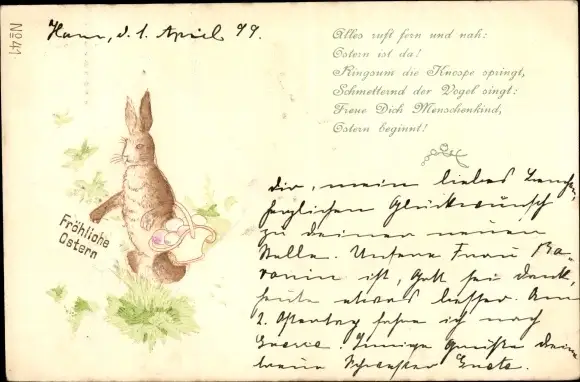 No 41
Hann, d. 1. April 99.
Alles ruft fern und nah:
Ostern ist da!
Ringsum die Knospe springt,
Schmetternd der Vogel singt:
Freue Dich Menschenkind,
Ostern beginnt!
Fröhliche
Ostern
Dir, mein liebes
herzlichen Glückwunsch
zu deiner neuen
Stelle. Unsere Frau Ba-
ronin ist, Gott sei Dank,
heute etwas besser. Am
2. Ostertag fahre ich nach
Innige Grüße deine
treue Schwester